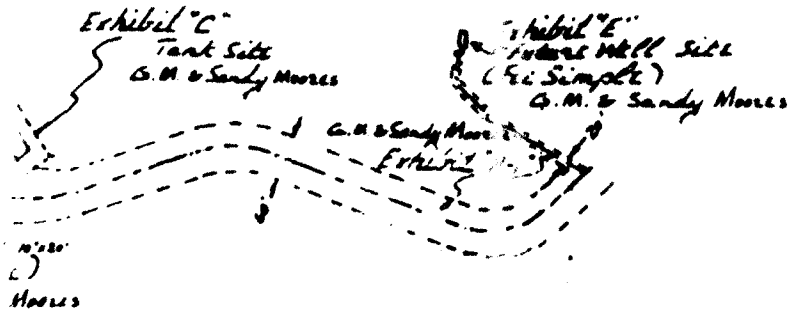 Exhibit "C"
Tank Site
G.M. & Sandy Moores
Exhibit "E"
Future Well Site
(Fee Simple)
G.M. & Sandy Moores
G.M. & Sandy Moores
Exhibit
10'x20'
)
Moores